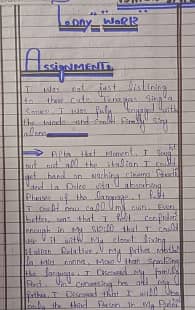 Today Work
Assignment
I was not just listining
to these cute Teenagers Singing
Songs I was fully engaged with
the words and could finally sing
along
After that moment, I sought
out not all the italian I could
get hand on watching cinema
and La Dolce vita absorbing
Phrases of the language, I felt
I could now call my own. Even
better was that I felt confident
enough in my skill that I could
use it with my closest living
Italian Relative my father mother
la mia nonna. More than speaking
the language, I Discovered my family
Past. In conversing her and my
father, I Discovered that I will be
only the third Person in my